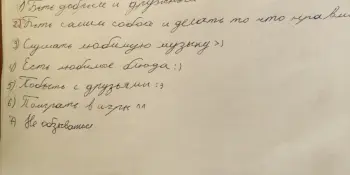 1) Быть добрым и
2) Быть самим собой и делать то что
3) Слушать любимую музыку>)
4) Есть любимое блюдо:)
5) Побыть с друзьями :3
6) Поиграть в игры ^^
7) Не обзываться